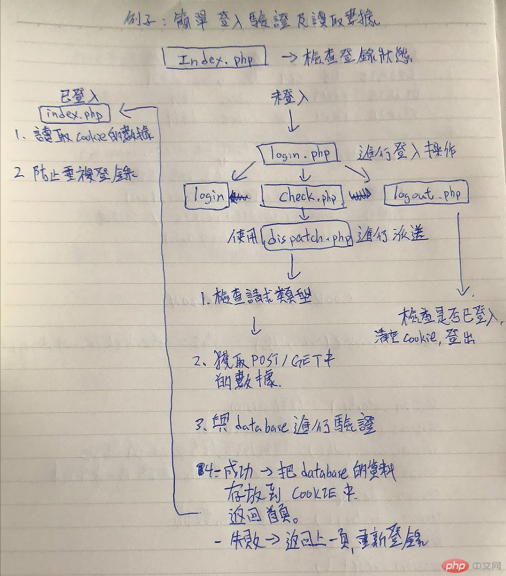 例子：簡單登入驗證及讀取數據
Index.php → 檢查登錄狀態
已登入
index.php
1. 讀取cookie的數據
2. 防止重複登錄
未登入
login.php 進行登入操作
login
check.php
logout.php
使用 dispatch.php 進行派送
1. 檢查請求類型
檢查是否已登入,
清空cookie, 登出
2. 獲取POST/GET中
的數據.
3. 與database進行驗證
4-成功→把database的資料
存放到COOKIE中.
返回首頁。
-失敗→返回上一頁,重新登錄
php 中文网